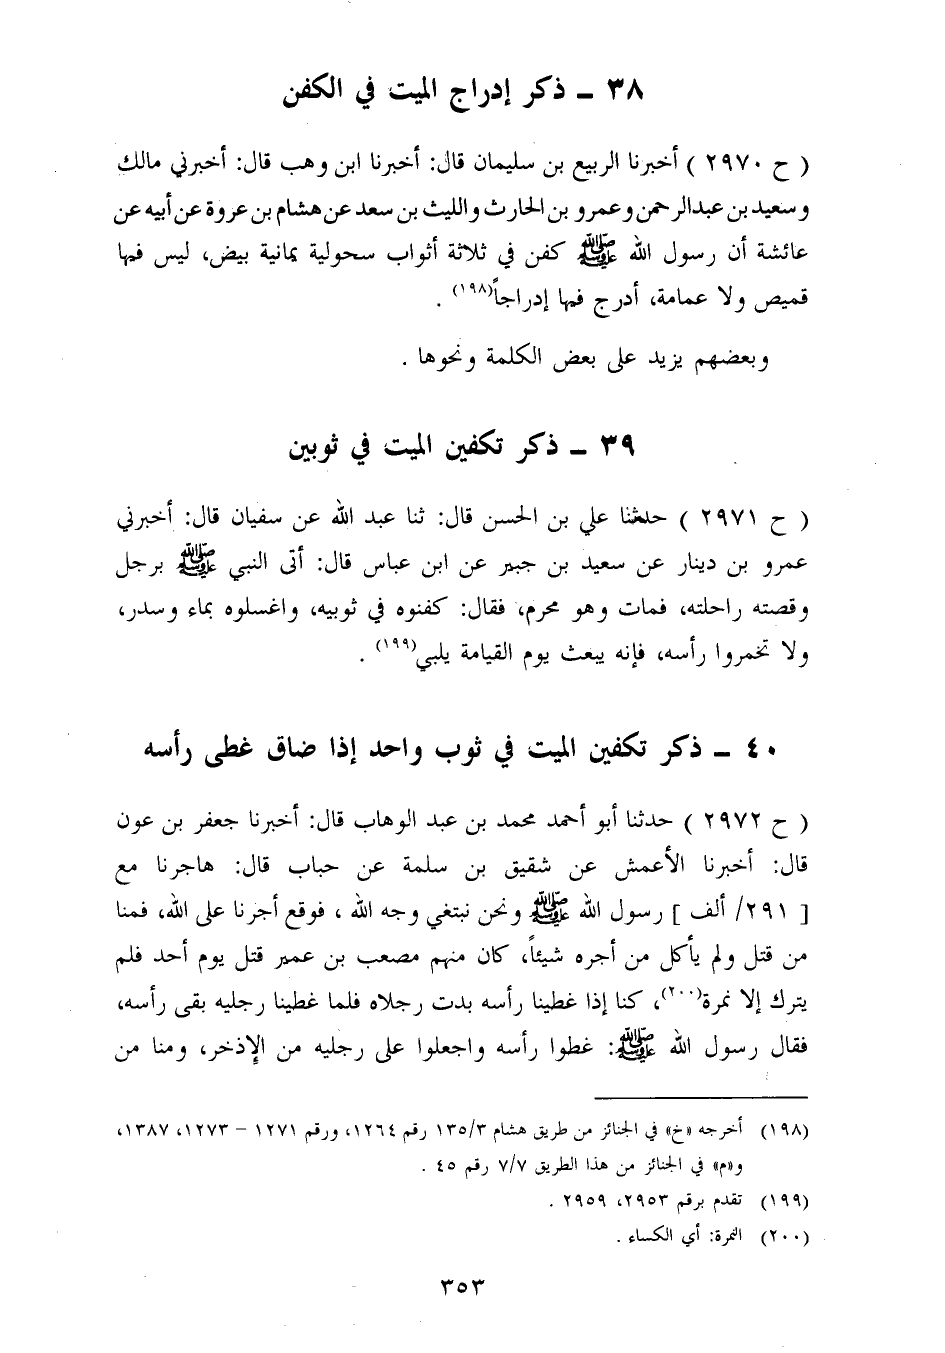 ٣٨ ــ ذكر إدراج الميت في الكفن
( ح ٢٩٧٠ ) أخبرنا الربيع بن سليمان قال: أخبرنا ابن وهب قال: أخبرني مالك
وسعيد بن عبدالرحمن وعمرو بن الحارث والليث بن سعد عن هشام بن عروة عن أبيه عن
عائشة أن رسول الله ﷺ كفن في ثلاثة أثواب سحولية يمانية بيض، ليس فيها
قميص ولا عمامة، أدرج فيها إدراجاً(١٩٨) .
وبعضهم يزيد على بعض الكلمة ونحوها .
٣٩ ــ ذكر تكفين الميت في ثوبين
( ح ٢٩٧١ ) حدثنا علي بن الحسن قال: ثنا عبد الله عن سفيان قال: أخبرني
عمرو بن دينار عن سعيد بن جبير عن ابن عباس قال: أتى النبي ﷺ برجل
وقصته راحلته، فمات وهو محرم، فقال: كفنوه في ثوبيه، واغسلوه بماء وسدر،
ولا تخمروا رأسه، فإنه يبعث يوم القيامة يلبي(١٩٩) .
٤٠ ــ ذكر تكفين الميت في ثوب واحد إذا ضاق غطى رأسه
( ح ٢٩٧٢ ) حدثنا أبو أحمد محمد بن عبد الوهاب قال: أخبرنا جعفر بن عون
قال: أخبرنا الأعمش عن شقيق بن سلمة عن حباب قال: هاجرنا مع
[ ٢٩١/ ألف ] رسول الله ﷺ ونحن نبتغي وجه الله ، فوقع أجرنا على الله، فمنا
من قتل ولم يأكل من أجره شيئاً، كان منهم مصعب بن عمير قتل يوم أحد فلم
يترك إلا نمرة(٢٠٠)، كنا إذا غطينا رأسه بدت رجلاه فلما غطينا رجليه بقى رأسه،
فقال رسول الله ﷺ: غطوا رأسه واجعلوا على رجليه من الإذخر، ومنا من
(١٩٨) أخرجه «خ» في الجنائز من طريق هشام ١٣٥/٣ رقم ١٢٦٤، ورقم ١٢٧١ – ١٢٧٣، ١٣٨٧،
و«م» في الجنائز من هذا الطريق ٧/٧ رقم ٤٥ .
(١٩٩) تقدم برقم ٢٩٥٣، ٢٩٥٩ .
(٢٠٠) النمرة: أي الكساء .
٣٥٣